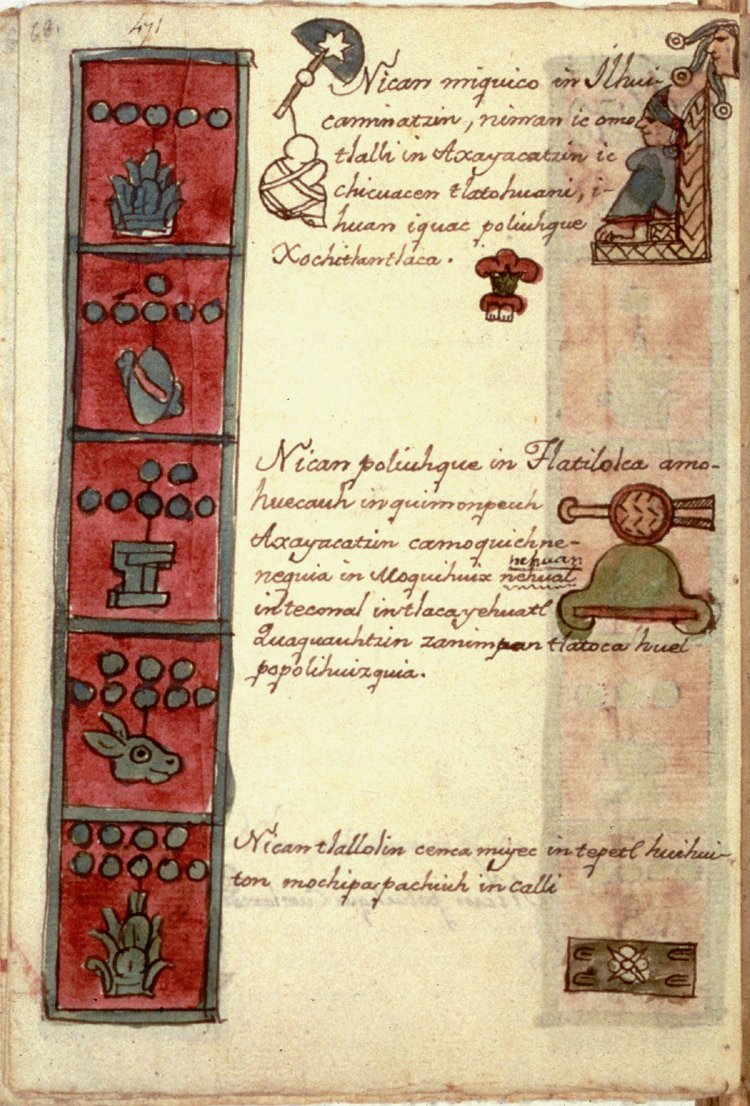 68.
471
Nican miquico in Ilhui-
caminatzin, niman ic omo
tlalli in Axayacatzin ic
chicuacen tlatohuani, i-
huan iquac poliuhque
Xochitlantlaca.
Nican poliuhque in Tlatilolca amo-
huecauh in quimonpeuh
Axayacatzin camoquichne-
nequia in Moquihuix nehual
nepuan
in teconal in tlacayehuatl
Quaquauhtzin zanimpan tlatoca huel
popolihuizquia.
Nican tlallolin cenca miyec in tepetl huihui-
ton mochipa pachiuh in calli